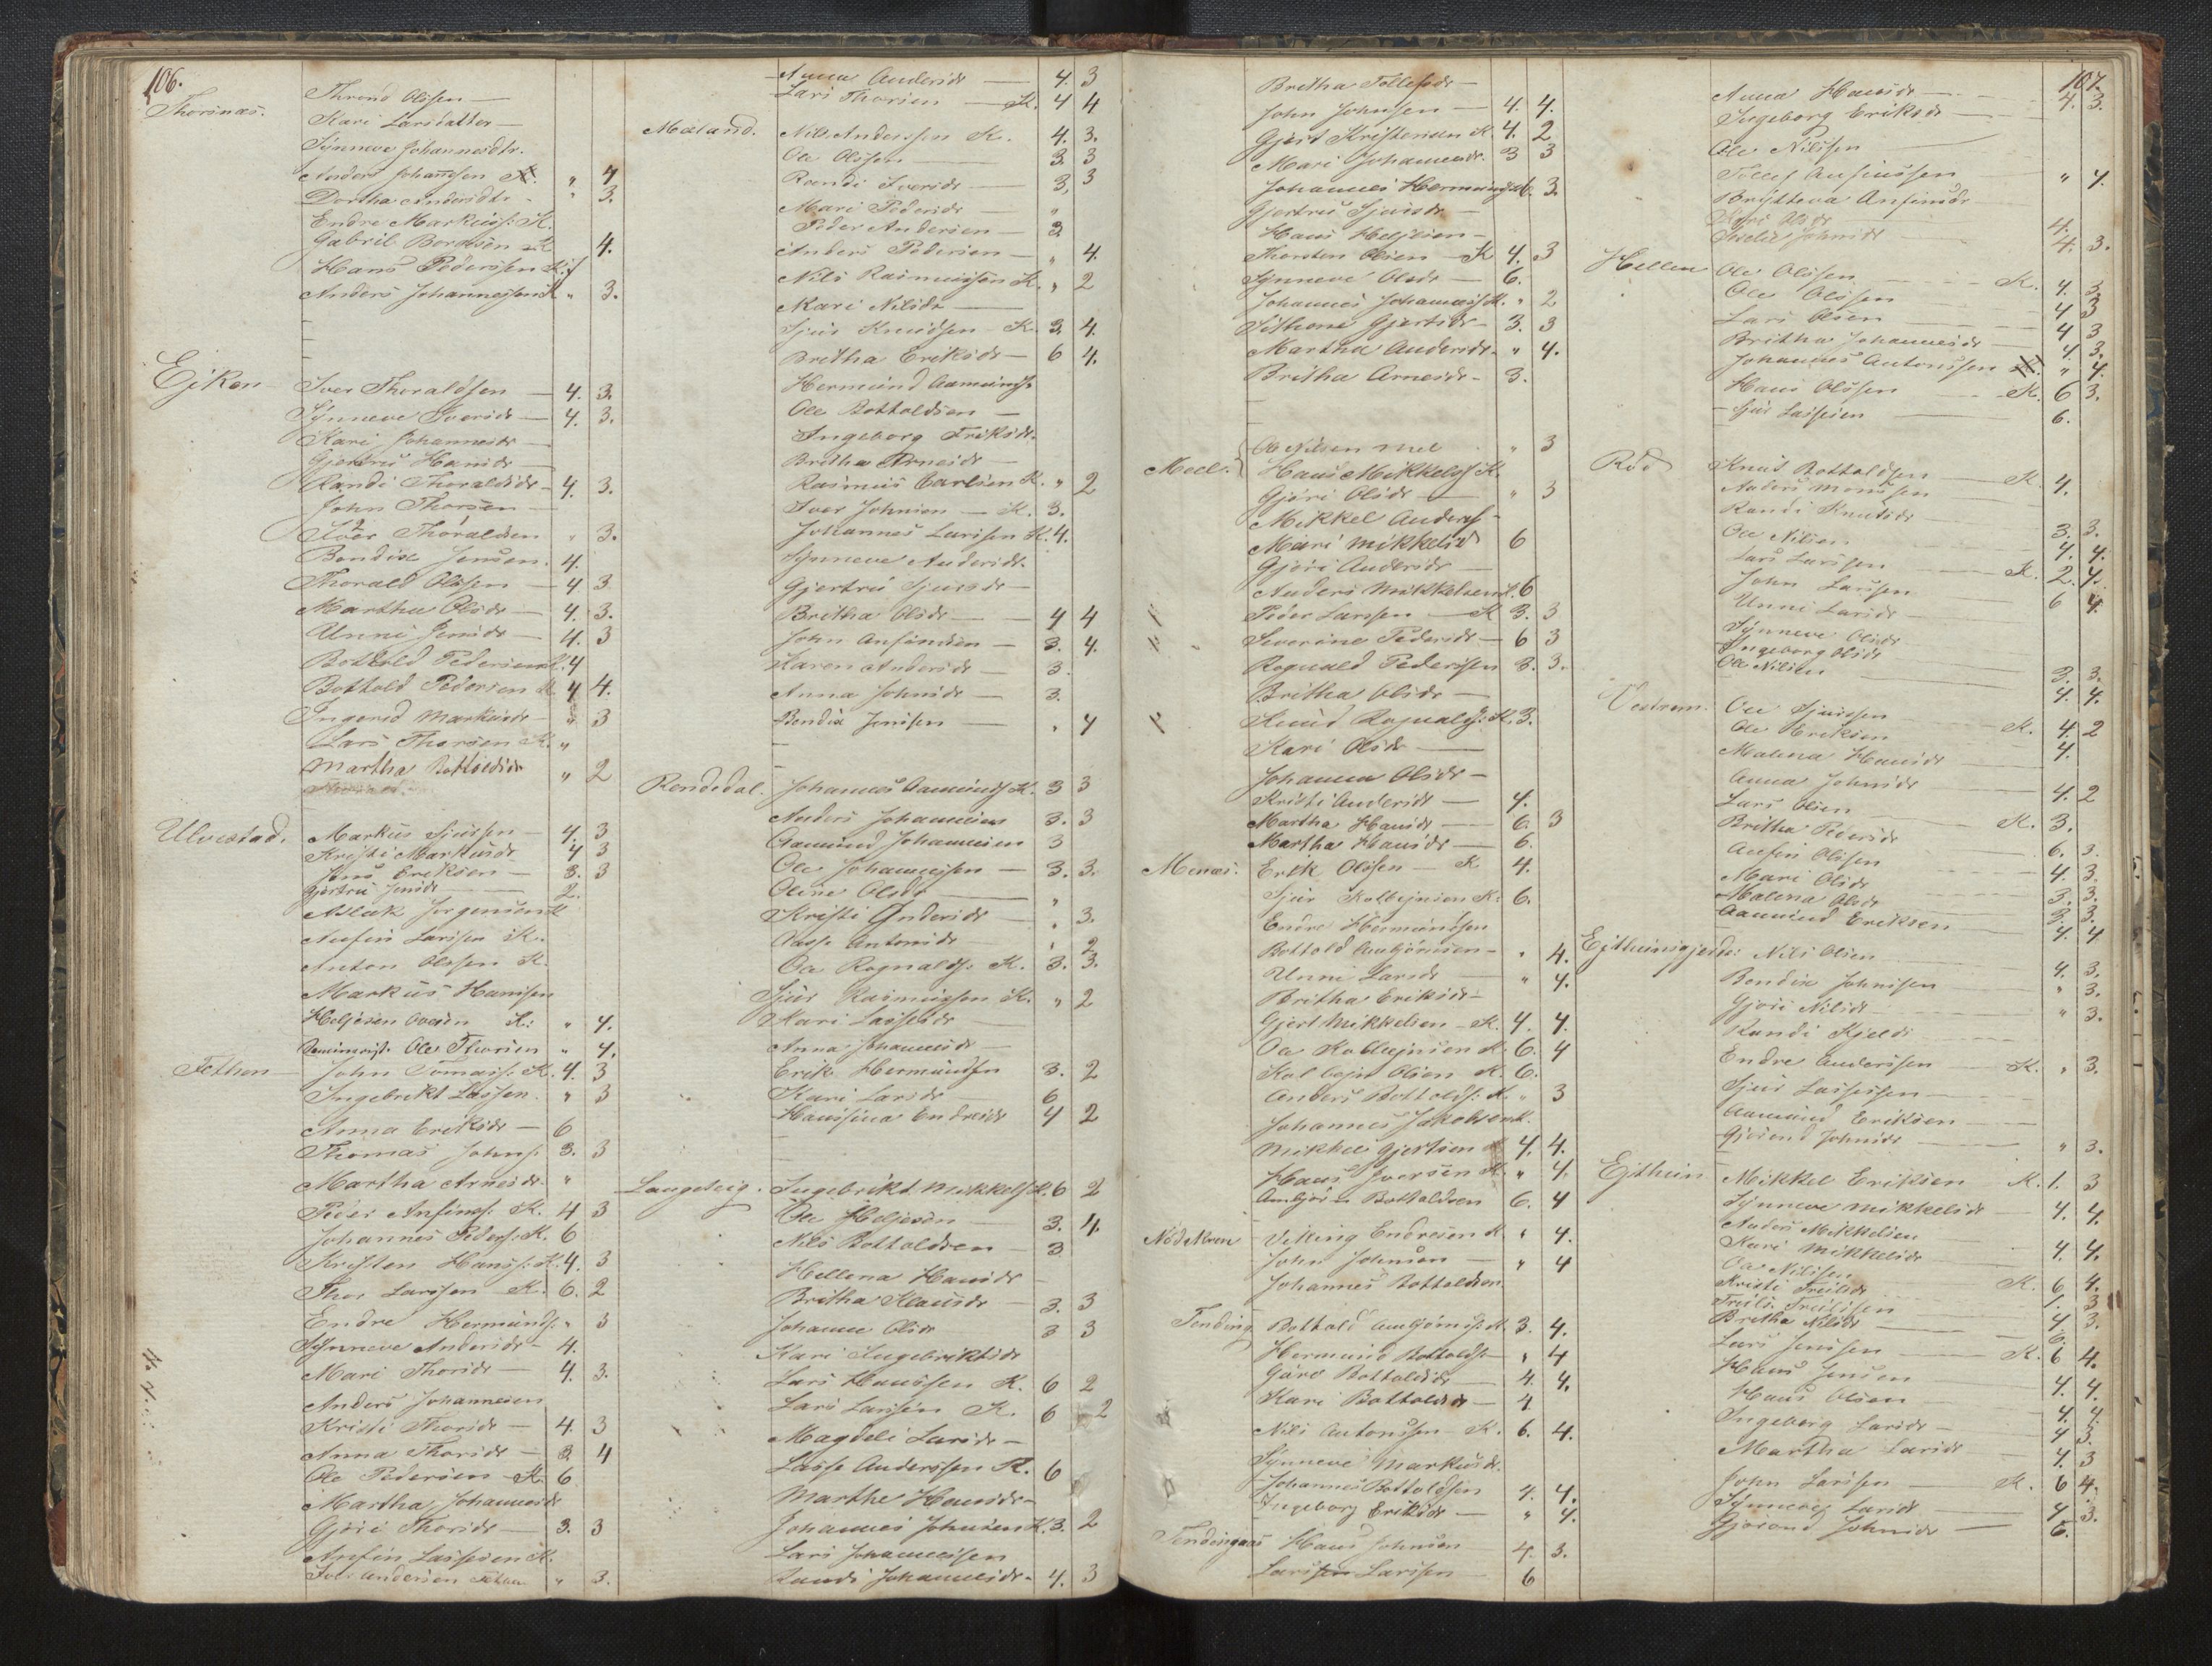 106.
Thorsnæs.
Thrond Olssen —
Kari Larsdatter —
Synneve Johannesdtr.
Anders Johanssen K. " 4
Dorthea Andersdtr. " 3.
Endre Markuss: K.
Gabriel Berdsen K 4.
Hans Pederssen K.
Anders Johannessen K " 3.
Ejken
Iver Thoraldsen — 4. 3.
Synneve Iversdr — 4. 3.
Kari Johannesdr —
Gjertru Hansdr —
Randi Thoraldsdr — 4. 3.
John Thorsen —
Iver Thoraldsen " 3.
Bendix Jensen. 4.
Thorald Olssen — 4 3
Martha Olsdr — 4. 3.
Unni Jensdr — 4. 3
Bottold Pedersen K. 4
Bottold Pedersen K. 4 4.
Ingerid Markusdr — 3 3
Lars Thorsen K. "
Martha Bottoldsdr " 2
Ulvestad.
Markus Sjurssen — 4. 3
Kristi Markusdr 4 3
Jens Eriksen — 3. 3
Gjertru Jensdr — 2.
Aslak Jørgensen K
Anfin Larssen K.
Anton Olssen K.
Markus Hanssen
Heljesen Ovesen K: " 4.
Ole Thorsen " 4.
Fethen
John Tomass: K. 4. 3
Ingebrikt Lassen. " 3
Anna Eriksdr — 6
Thomas Johns: 3. 3
Martha Arnesdr "
Peder Anfins: K. 4 3
Johannes Peders: K. 6
Kristen Hanss: K. 4. 3
Thor Larssen K. 6. 2
Endre Hermunds: " 3
Synneve Andersdr — 4.
Mari Thorsdr — 4. 3.
Anders Johannessen
Kristi Thorsdr — 4. 3
Anna Thorsdr — 3 4
Ole Pedersen K. 6
Martha Johannesdr
Gjøri Thorsdr — 3. 3
Anfin Lassesen K.
Iver Andersen Fethen " 3.
Anna Andersdr — 4. 3
Lars Thorsen — K. 4 4
Mæland.
Nils Anderssen K. 4. 3.
Ole Olssen — 3. 3
Randi Iversdr — 3. 3
Mari Pedersdr — "
Peder Andersen — 3.
Anders Pedersen — " 4.
Nils Rasmussen K. " 2
Kari Nilsdr —
Sjur Knudssen K. 3. 4.
Britha Eriksdr — 6 4.
Hermund Aamunds.
Ole Bottoldsen —
Ingeborg Eriksdr.
Britha Arnesdr —
Rasmus Carlsen K. " 2
Iver Johnsen — K. 3.
Johannes Larssen K. 4.
Synneve Andersdr.
Gjertru Sjursdr —
Britha Olsdr — 4 4
John Anfindsen — 3. 4.
Karen Andersdr — 3.
Anna Johnsdr — 3.
Bendix Jenssen — " 4
Rendedal.
Johannes Aamunds K. 3 3
Anders Johannesen 3. 3
Aamund Johannesen 3
Ole Johannessen — 3. 3.
Oline Olsdr — "
Kristi Andersdr — " 3.
Lasse Antonsdr " 2
Ole Rognalds: K. 3. 3.
Sjur Rasmussen K. " 2
Kari Lassesdr —
Anna Johannesdr —
Erik Hermundsen 3. 2
Kari Larsdr 6
Hanssina Endresdr 4 2
Langeteig.
Ingebrikt Mikkels K. 6 2
Ole Heljesen — 3. 4.
Nils Bottoldsen — 3
Hellena Hansdr —
Britha Klausdr — 3. 3
Johanne Olsdr 3 3
Kari Ingebriktsdr
Lars Hanssen K. 6 2
Lars Larssen K. 6 2
Magdeli Larsdr —
Lasse Anderssen K. 6
Marthe Hansdr —
Johannes Johnsen K. 3. 2
Lars Johannessen
Randi Johannesdr — 4. 3
Britha Tollefsdr —
John Johnssen — 4. 4.
Gjert Kristensen K. 4. 2
Mari Johannesdr. 3 3
Johannes Hermunds K. 6. 3.
Gjertru Sjursdr —
Hans Heljesen —
Thorsten Olssen — K 4. 3
Synneve Olsdr — 6.
Johannes Johanness K. " 2
Sithene Gjertsdr — 3. 3
Martha Andersdr. " 4.
Britha Arnesdr — 3.
Meel.
Ole Nilsen Mel " 3
Hans Mikkels K.
Gjøri Olsdr — " 3
Mikkel Anders —
Mari Mikkelsd 6
Gjøri Andersdr —
Anders Mikkelsen K. 6
Peder Larssen — K 3. 3
Severine Pedersdr — 6 3
Rognald Pederssen 3. 3.
Britha Olsdr —
Knud Rognalds: K. 3.
Kari Olsdr —
Johanna Olsdr —
Kristi Andersdr — 4.
Martha Hansdr — 6. 3
Martha Hansdr — 6.
Menæs.
Erik Olssen — K 4.
Sjur Kolbejnsen K. 6.
Endre Hermundsen
Bottold Anbjørnsen — " 4.
Unni Larsdr — " 4.
Britha Eriksdr —
Gjert Mikkelsen — K. 4. 4.
Ole Kolbejnsen K. 6. 4
Kolbejn Olsen K. 6.
Anders Bottolds: K. " 3
Johannes Jakobsen K.
Mikkel Gjertsen K 4. 4.
Hans Iversen K. " 4.
Anbjørn Bottoldsen 6. 4
Nødstrene
Viking Endresen K. " 4.
John Johnsen — " 4
Johannes Bottoldsen
Tending
Bottold Anbjørns: K. 3. 4.
Hermund Bottolds — " 4
Gjøre Bottoldsdr — 4. 4.
Kari Bottoldsdr — 4.
Nils Antonssen — K. 6. 4.
Synneve Markusdr.
Johannes Bottoldsen 4. 4.
Ingeborg Eriksdr — " 4.
Tendingnæs
Hans Johnsen 4. 3.
Larssen Larssen — 6
107.
Anna Hansdr — 4. 3.
Ingeborg Eriksdr —
Ole Nilssen —
Tollef Anfinssen " 4.
Brittheva Anfinsdr
Kari Olsdr 4.
Johnsdr 4. 3.
Hellen
Ole Olssen — K. 4. 3.
Ole Olssen 4 3
Lars Olsen 4 3
Britha Johannesdr — 4. 3.
Johannes Antonssen K. " 4.
Hans Olssen — K. 6 3.
Sjur Lassesen — 6.
Röd
Knut Bottoldsen — K. 4.
Anders Monssen
Randi Knutsdr —
Ole Nilsen 3. 3.
Lars Larssen — K. 4. 4.
John Larssen 2. 4.
Unni Larsdr — 6 4.
Synneve Olsdr
Ingeborg Olsdr
Ole Nilsen — 3. 3.
Vestrem.
Ole Sjurssen 4. 4.
Ole Eriksen K. 4. 2
Malena Hansdr 4.
Anna Johnsdr —
Lars Olsen 4. 2
Britha Pedersdr K. 3.
Anfin Olssen 6. 3.
Mari Olsdr 4. 3.
Malena Olsdr 3. 3.
Aamund Eriksen — 4. 4
Ejthunsgjerde:
Nils Olsen 4. 3.
Bendix Johnssen " 3.
Gjøri Nilsdr " 3.
Randi Kjelds
Endre Anderssen — K. " 3.
Sjur Lassessen —
Aamund Eriksen —
Gjørend Johnsdr — " 3.
Ejthun
Mikkel Eriksen K. 1. 3
Synneve Mikkelsdr — 4. 4.
Anders Mikkelsen
Kari Mikkelsdr 4. 4.
Ole Nilssen K. 6 4.
Kristi Truilsdr 1. 3
Truils Truilssen 4 3.
Britha Nilsdr — 6.
Lars Jenssen — K. 6 4.
Hans Jensen 4. 4.
Hans Olsen 4. 4.
Ingeborg Larsdr — 4 3.
Martha Larsdr 4. 3
John Larssen — K. 6 4.
Synneve Larsdr 4 3.
Gjørond Johnsdr — 6.